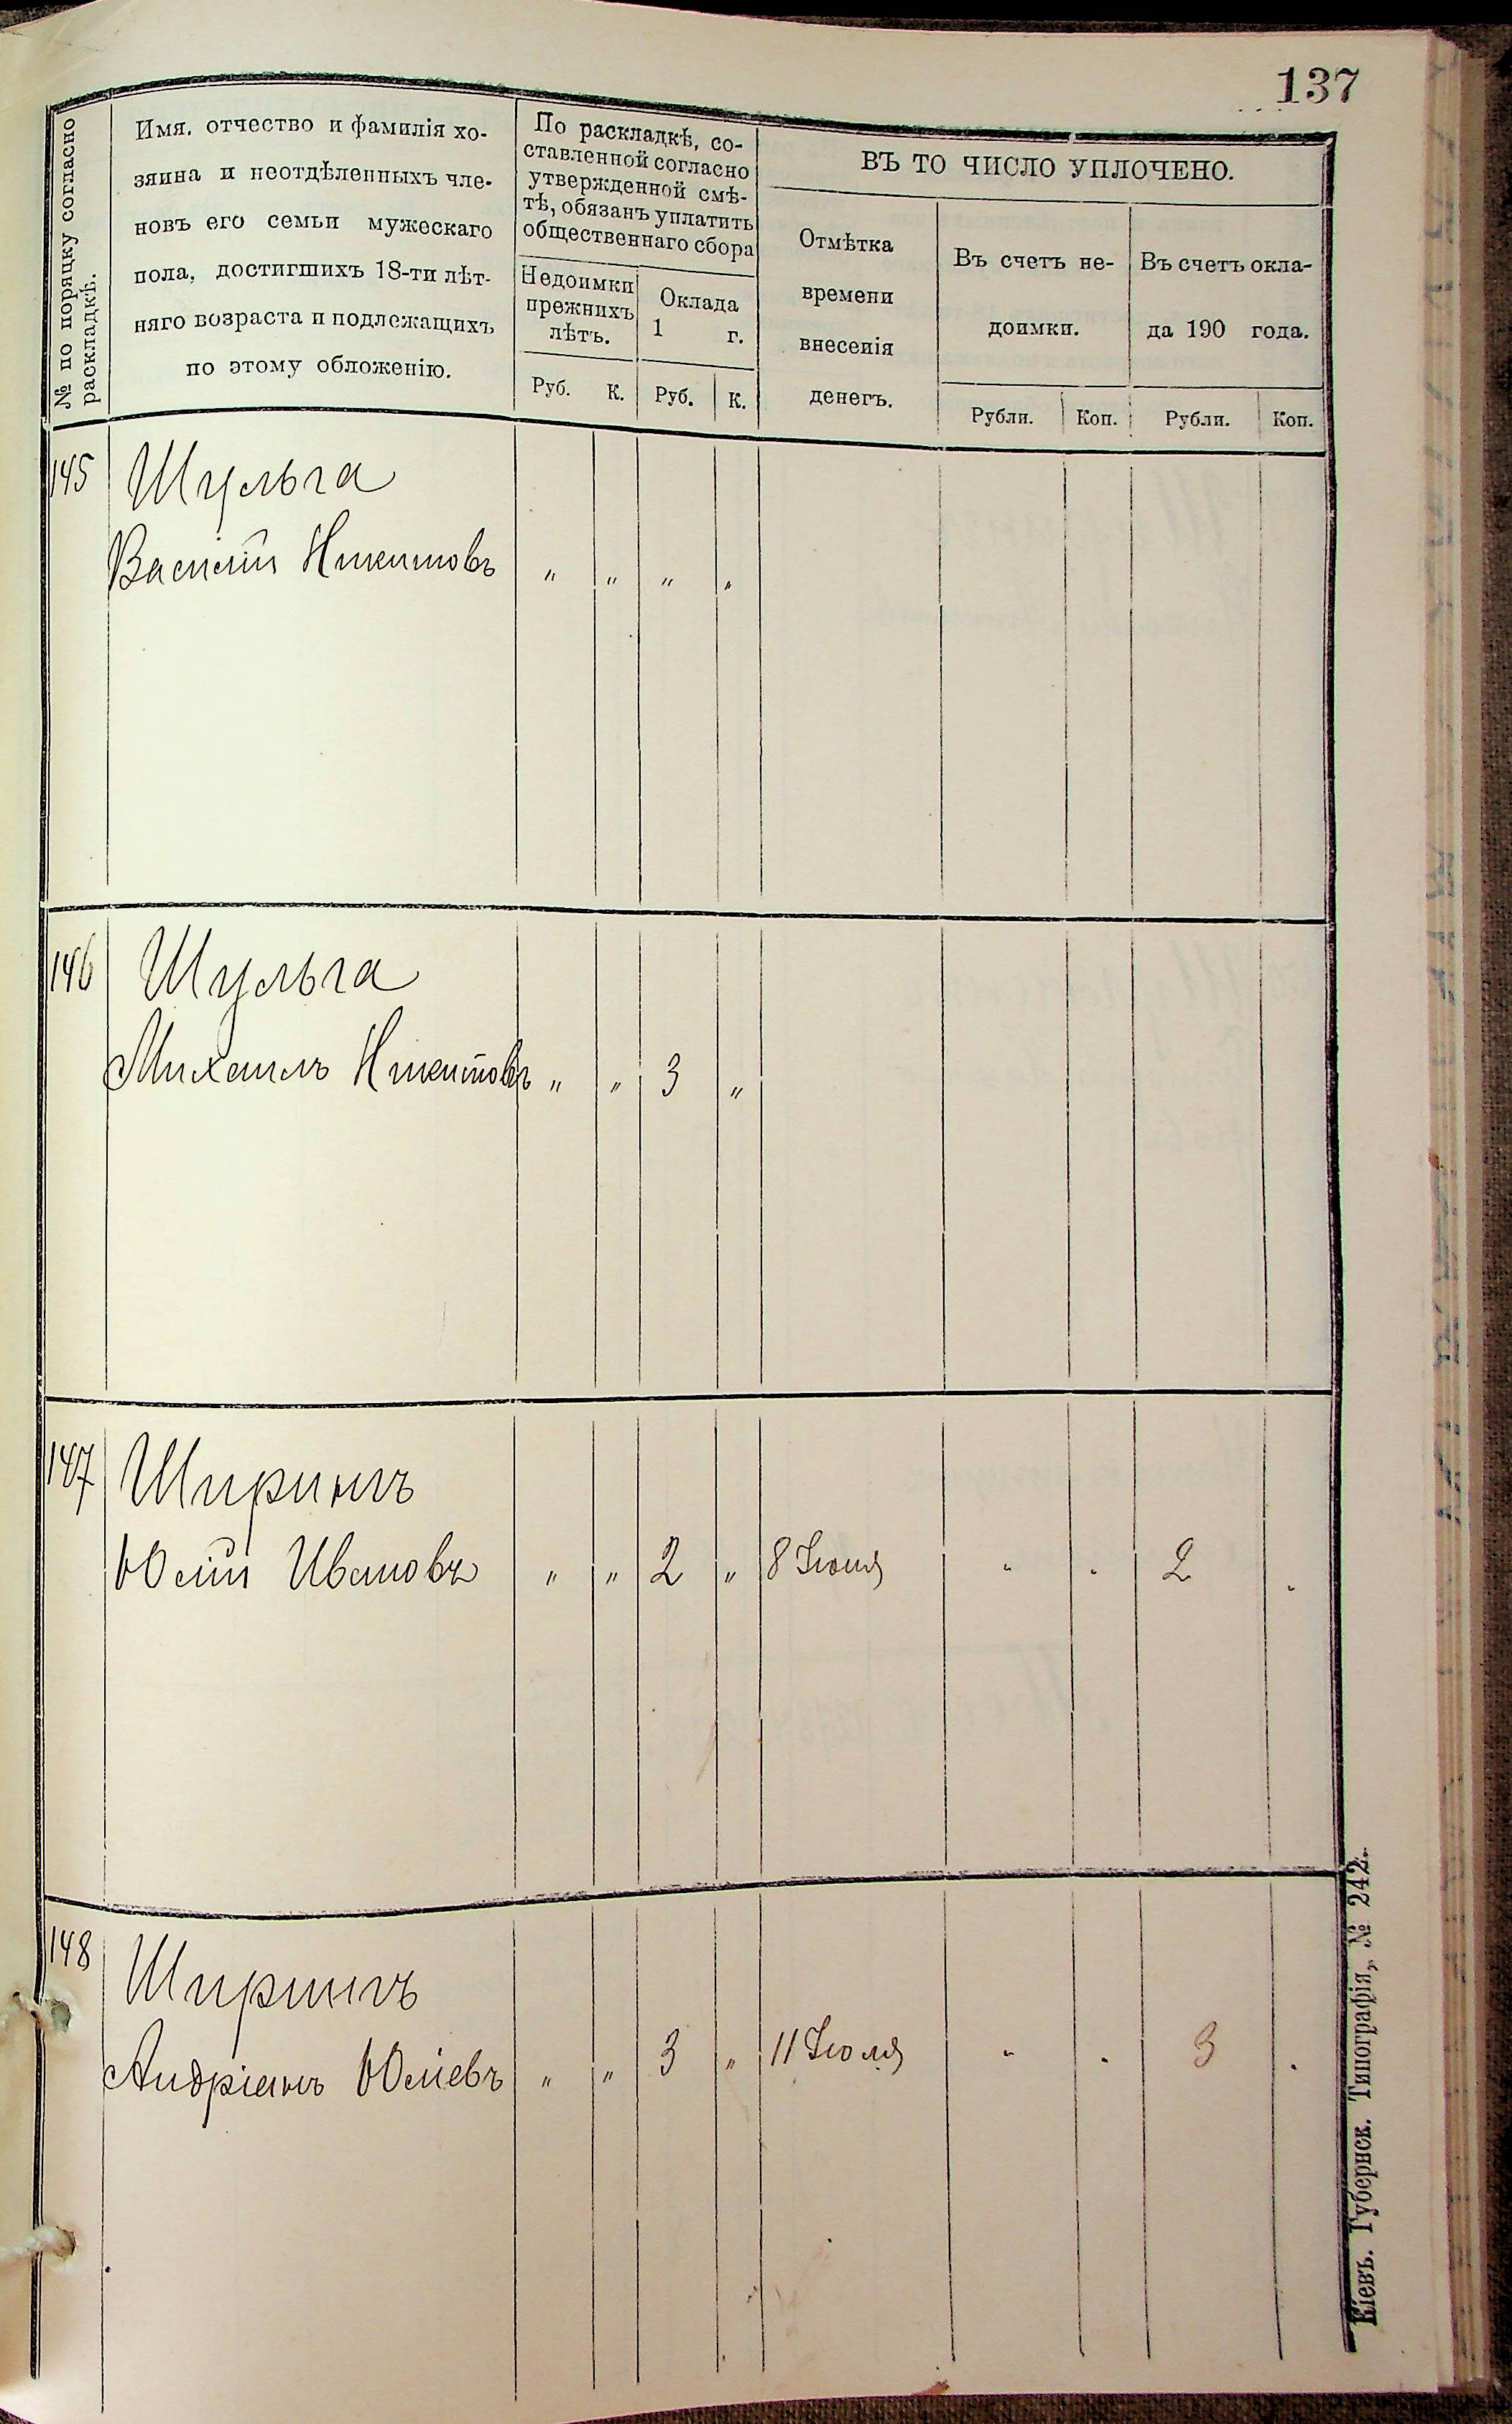 137
№ по порядку согласно
раскладкѣ.
Имя, отчество и фамилія хо-
зяина и неотдѣленныхъ чле-
новъ его семьи мужескаго
пола, достигшихъ 18-ти лѣт-
няго возраста и подлежащихъ
по этому обложенію.
По раскладкѣ, со-
ставленной согласно
утвержденной смѣ-
тѣ, обязанъ уплатить
общественнаго сбора
Недоимки
прежнихъ
лѣтъ.
Оклада
1 г.
Руб. К. Руб. К.
ВЪ ТО ЧИСЛО УПЛОЧЕНО.
Отмѣтка
времени
внесенія
денегъ.
Въ счетъ не-
доимки.
Въ счетъ окла-
да 190 года.
Рубли. Коп. Рубли. Коп.
145 Шульга
Василій Никитовъ „ „ „ „
146 Шульга
Михаилъ Никитовъ „ „ 3 „
147 Ширинъ
Юлій Ивановъ „ „ 2 „ 8 Іюня „ „ 2 „
148 Ширинъ
Андріанъ Юліевъ „ „ 3 „ 11 Іюля „ „ 3 „
Кіевъ. Губернск. Типографія, № 242.